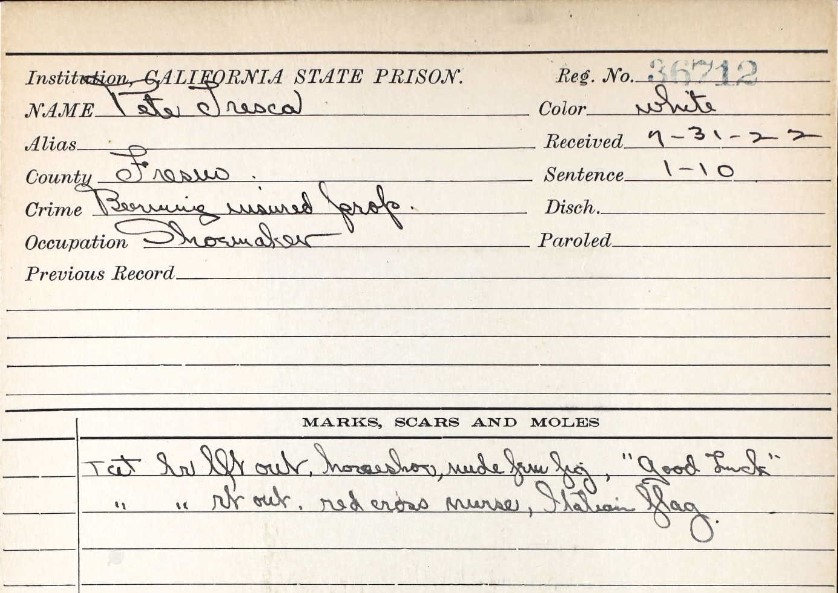 Institution, CALIFORNIA STATE PRISON. Reg. No. 36712
NAME Pete Tresca Color white
Alias Received 7-31-22
County Fresno. Sentence 1-10
Crime Burning insured prop. Disch.
Occupation Shoemaker Paroled
Previous Record
MARKS, SCARS AND MOLES
Tat lft out. horseshoe, nude fem fig, "Good Luck"
" " rt out. red cross nurse, Italian flag.